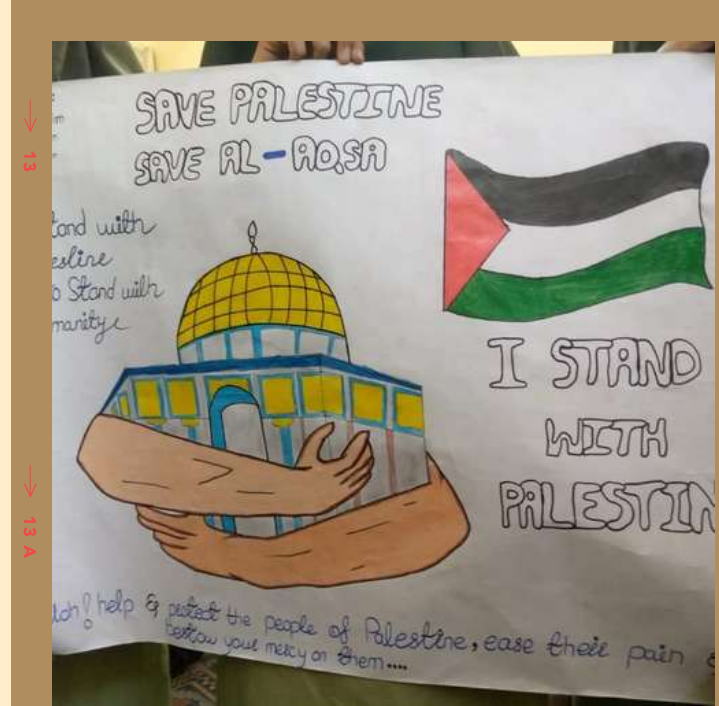 SAVE PALESTINE
SAVE AL-AQSA
tand with
estine
o Stand with
manity
I STAND
WITH
PALESTIN
help & protect the people of Palestine, ease their pain &
bestow your mercy on them....
13
13 A